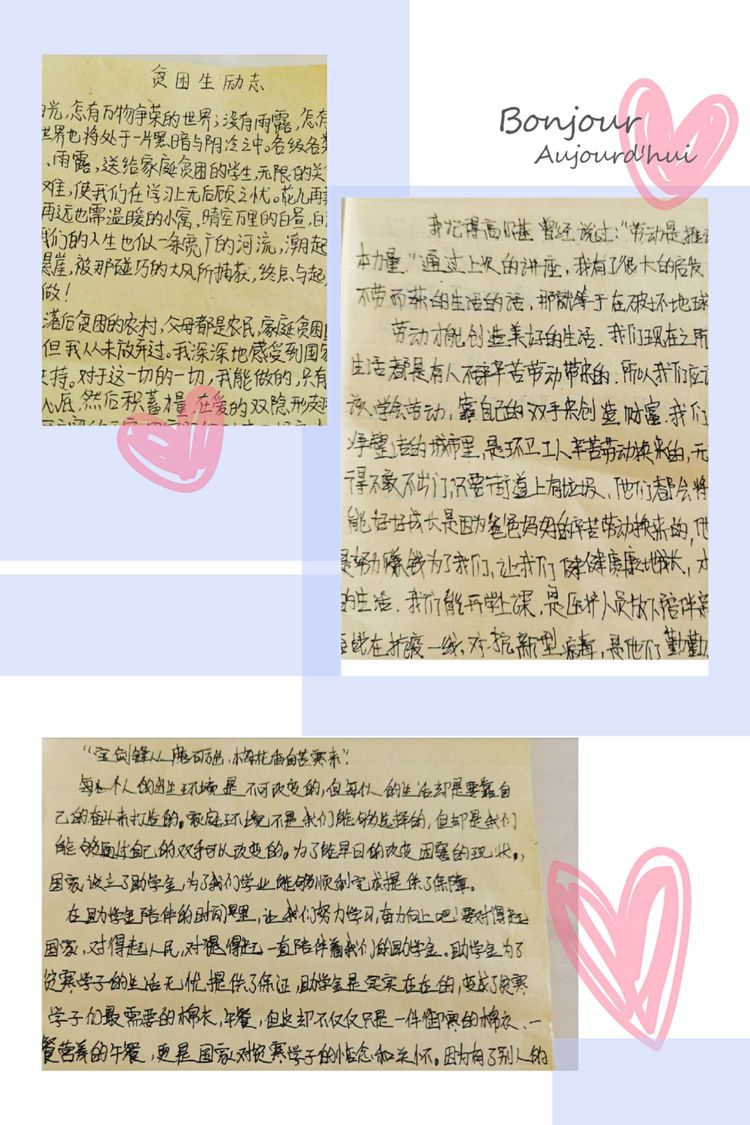 Bonjour
Aujourd'hui
贫困生励志
光，怎有万物争荣的世界；没有雨露，怎有
世界也将处于一片黑暗与阴冷之中。各级各
、雨露，送给家庭贫困的学生，无限的关
难，使我们在学习上无后顾之忧。花儿再
再远也需温暖的小窝、晴空万里的白昼，白
我们的人生也似一条宽广的河流，潮起
悬崖，被那碰巧的大风所捕获，终点与起
做！
落后贫困的农村，父母都是农民，家庭贫困
但我从未放弃过。我深深地感受到国家
支持。对于这一切的一切，我能做的，只有
心底，然后积蓄力量，在爱的双隐形
我记得高尔基曾经说过：“劳动是推动
本力量。”通过上次的讲座，我有了很大的启发
不劳而获的生活的话，那就等于在破坏地球
劳动才能创造美好的生活．我们现在之所
生活都是有人不辞辛苦劳动带来的．所以我们应该
该学会劳动，靠自己的双手来创造财富．我们
净整洁的城市里，是环卫工人辛苦劳动换来的，无
得不敢不出门，只要街道上有垃圾，他们都会将
能好好成长是因为爸爸妈妈的辛苦劳动换来的，他
是努力赚钱为了我们，让我们健健康康地成长，才
的生活．我们能开学上课，是医护人员放下陪伴
战在抗疫一线，对抗新型病毒，是他们勤勤
“宝剑锋从磨砺出，梅花香自苦寒来”.
每个人的出生环境是不可改变的，但每个人的生活却是要靠自
己的奋斗来打造的。家庭环境不是我们能够选择的，但却是我们
能够通过自己的双手可以改变的。为了能早日的改变困窘的现状，
国家设立了助学金，为了我们学业能够顺利完成提供了保障。
在助学金陪伴的时间里，让我们努力学习，奋力向上吧！要对得起
国家，对得起人民，对得起一直陪伴着我们的助学金。助学金为了
贫寒学子的生活无忧提供了保证，助学金是实实在在的，变成了贫寒
学子们最需要的棉衣，午餐，但这却不仅仅只是一件御寒的棉衣、一
餐营养的午餐，更是国家对贫寒学子的惦念和关怀。因为有了别人的